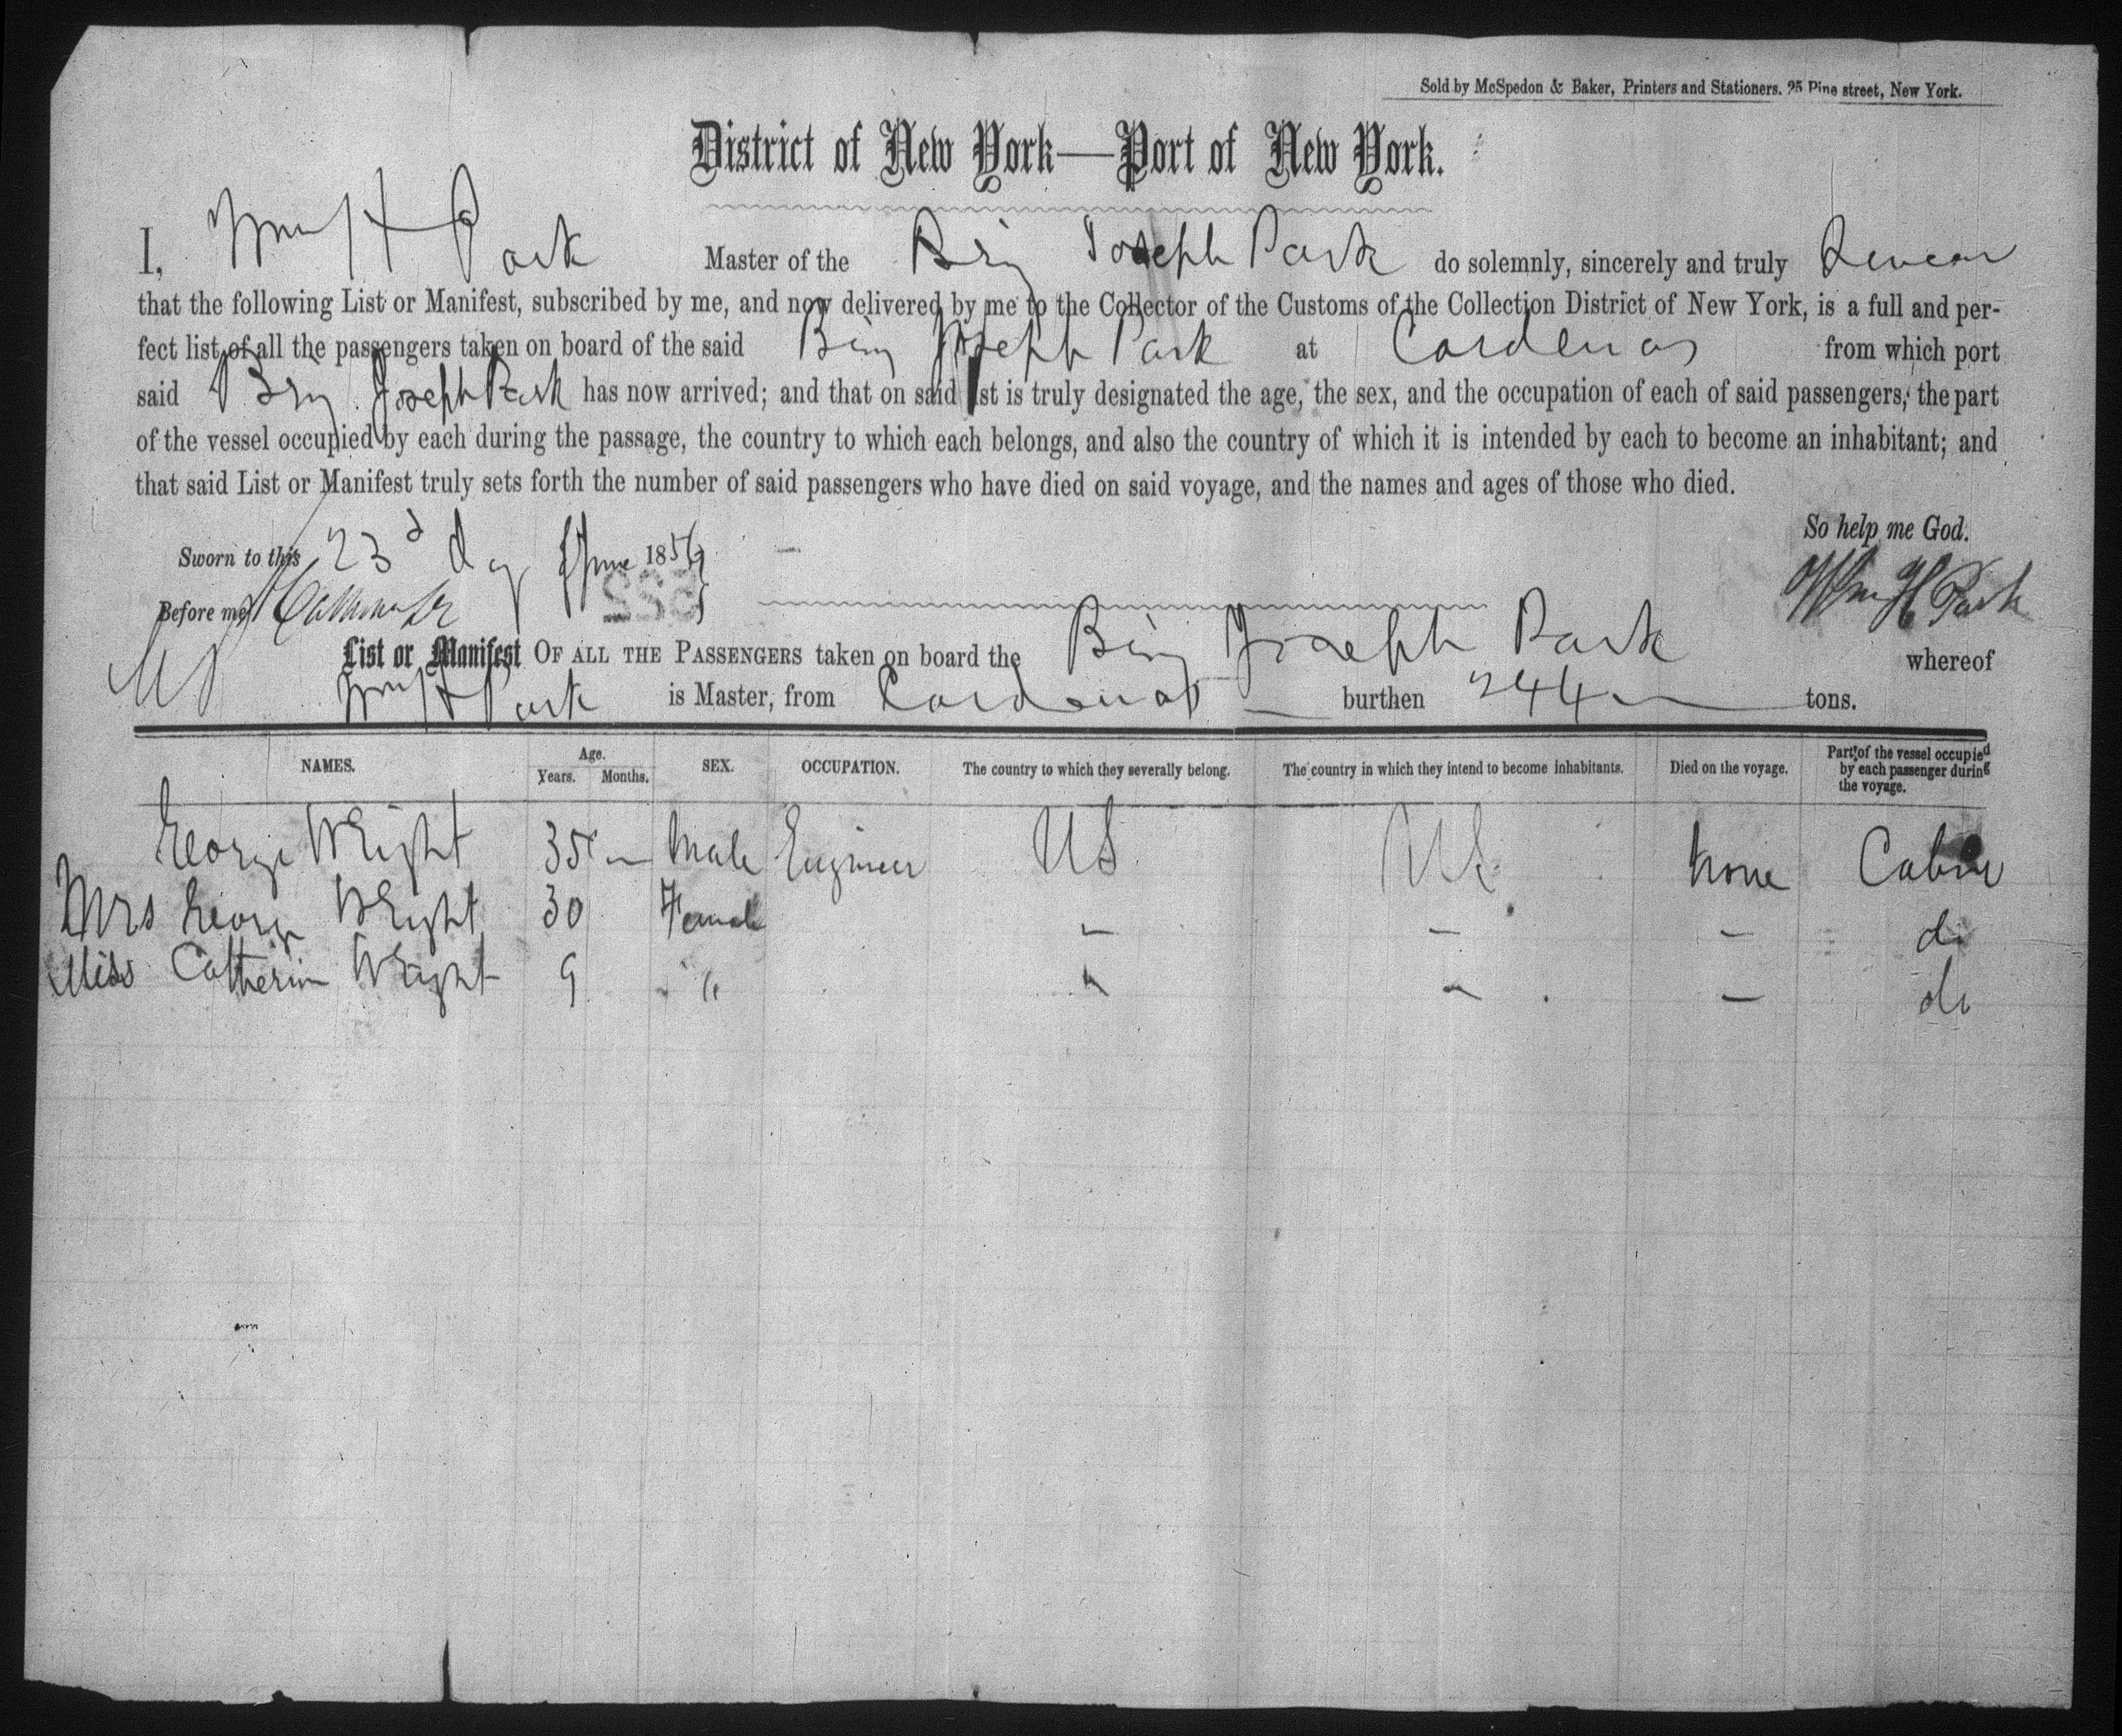 Sold by McSpedon & Baker, Printers and Stationers, 25 Pine street, New York.
District of New York—Port of New York.
I, Wm H Park Master of the Brig Joseph Park do solemnly, sincerely and truly Swear
that the following List or Manifest, subscribed by me, and now delivered by me to the Collector of the Customs of the Collection District of New York, is a full and per-
fect list of all the passengers taken on board of the said Brig Joseph Park at Cardenas from which port
said Brig Joseph Park has now arrived; and that on said list is truly designated the age, the sex, and the occupation of each of said passengers, the part
of the vessel occupied by each during the passage, the country to which each belongs, and also the country of which it is intended by each to become an inhabitant; and
that said List or Manifest truly sets forth the number of said passengers who have died on said voyage, and the names and ages of those who died.
So help me God.
Sworn to this 23d day of June 1856
522
Before me
Wm H Park
List or Manifest OF ALL THE PASSENGERS taken on board the Brig Joseph Park whereof
Wm H Park is Master, from Cardenas burthen 244 tons.
NAMES. Age. Years. Months. SEX. OCCUPATION. The country to which they severally belong. The country in which they intend to become inhabitants. Died on the voyage. Part of the vessel occupied by each passenger during the voyage.
George Wright 35 — Male Engineer US US None Cabin
Mrs George Wright 30 Female – – – do
Miss Catherin Wright 9 " – – – do